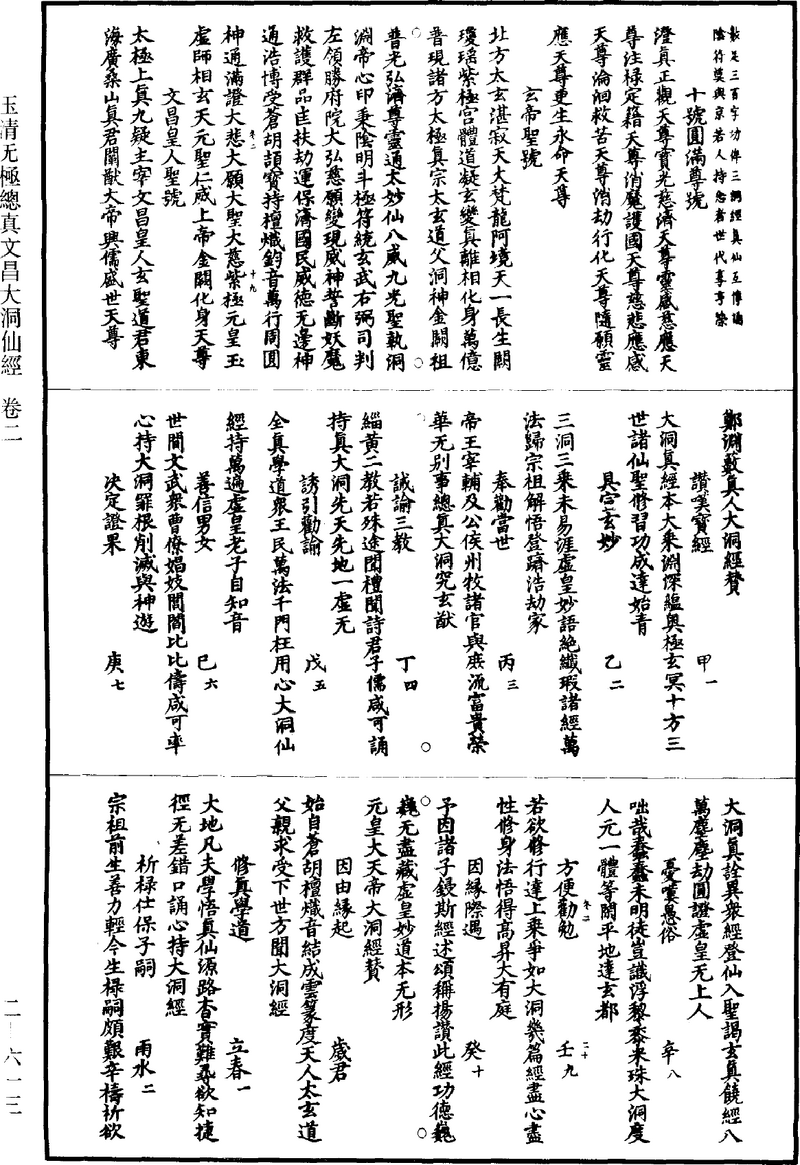 數足三百字功傳三洞經眞仙互傳誦
陰符奠與京若人持念者世代享亨榮
十號圓滿尊號
澄真正觀天尊寶光慈濟天尊靈感慈應天
尊注祿定籍天尊消魔護國天尊慈悲應感
天尊淪洄救苦天尊消劫行化天尊隨願靈
應天尊更生永命天尊
玄帝聖號
北方太玄湛寂天大梵龍阿境天一長生闕
瓊瑤紫極宫體道凝玄變真離相化身萬億
普現諸方太極真宗太玄道父洞神金闕祖
普光弘濟尊靈通太妙仙八威九光聖執洞
淵帝心印秉陰明斗極符統玄武右弼司判
左領勝府院大弘慈願變現威神誓斷妖魔
救護羣品匡扶劫運保濟國民威德无邊神
通浩博受蒼胡頡寶持檀熾鈞音萬行周圓
卷二 十九
神通滿證大悲大願大聖大慈紫極元皇玉
虚師相玄天元聖仁威上帝金闕化身天尊
文昌皇人聖號
太極上真九疑主宰文昌皇人玄聖道君東
海廣桑山真君闡猷大帝興儒盛世天尊
鄭淵藪真人大洞經贊
讚嘆寶經 甲一
大洞真經本大乘淵深緼奥極玄冥十方三
世諸仙聖修習功成達始青
具宗玄妙 乙二
三洞三乘未易涯虚皇妙語絶纖瑕諸經萬
法歸宗祖解悟登躋浩劫家
奉勸當世 丙三
帝王宰輔及公侯州牧諸官與庶流富貴榮
華无别事總真大洞究玄猷
誡諭三教 丁四
緇黄二教若殊途閲禮聞詩君子儒咸可誦
持真大洞先天先地一虚无
誘引勸諭 戊五
全真學道衆王民萬法千門枉用心大洞仙
經持萬遍虚皇老子自知音
善信男女 己六
世間文武衆曹僚娼妓閭閻比比儔咸可率
心持大洞罪根削滅與神遊
决定證果 庚七
大洞真詮異衆經登仙入聖謁玄真饒經八
萬塵塵劫圓證虚皇无上人
憂嘆愚俗 辛八
咄哉蠢蠢未明徒豈識浮黎黍米珠大洞度
人元一體等閑平地達玄都
卷二 二十
方便勸勉 壬九
若欲修行達上乘爭如大洞幾篇經盡心盡
性修身法悟得高昇大有庭
因緣際遇 癸十
予因諸子鋟斯經述頌稱揚讚此經功德巍
巍无盡藏虚皇妙道本无形
元皇大天帝大洞經贊
因由緣起 歲君
始自蒼胡檀熾音結成雲篆度天人太玄道
父親求受下世方聞大洞經
修真學道 立春一
大地凡夫學悟真仙源路杳實難尋欲知捷
徑无差錯口誦心持大洞經
祈禄仕保子嗣 雨水二
宗祖前生善力輕今生禄嗣頗艱辛禱祈欲
玉清无極總真文昌大洞仙經 卷二
二—六一三